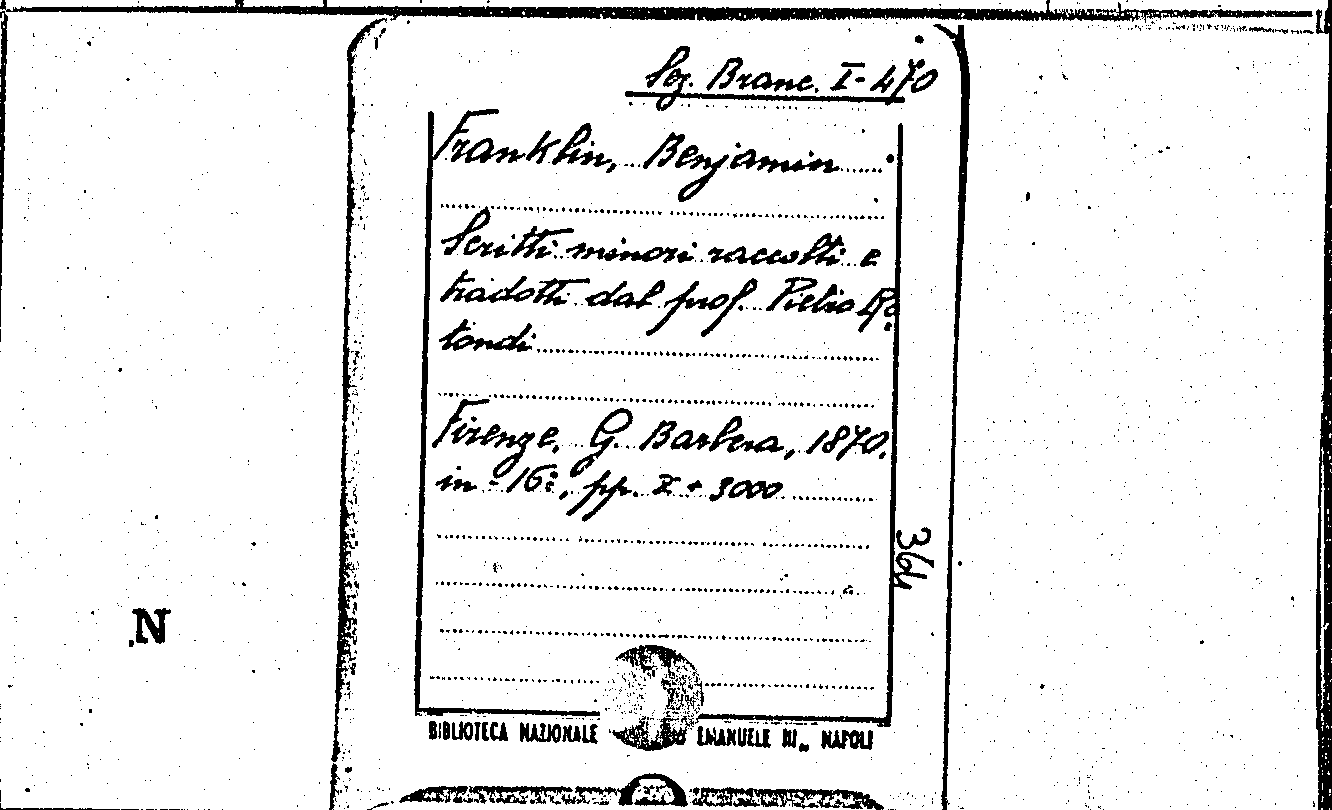 Sez. Branc. I-470
Franklin, Benjamin
Scritti minori raccolti e
tradotti dal prof. Pietro Ro
tondi
Firenze, G. Barbera, 1870.
in-16º, pp. X + 3000
364
N
BIBLIOTECA NAZIONALE EMANUELE III„ NAPOLI